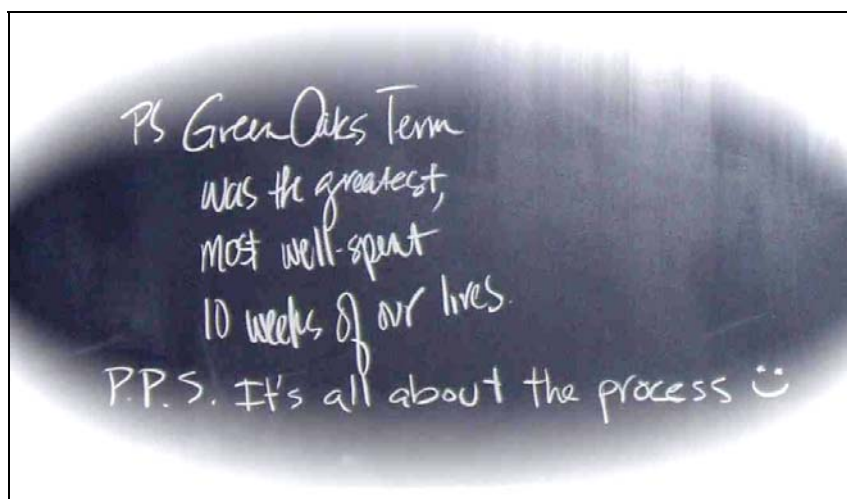 PS Green Oaks Term
was the greatest,
most well-spent
10 weeks of our lives.
P.P.S. It's all about the process ü